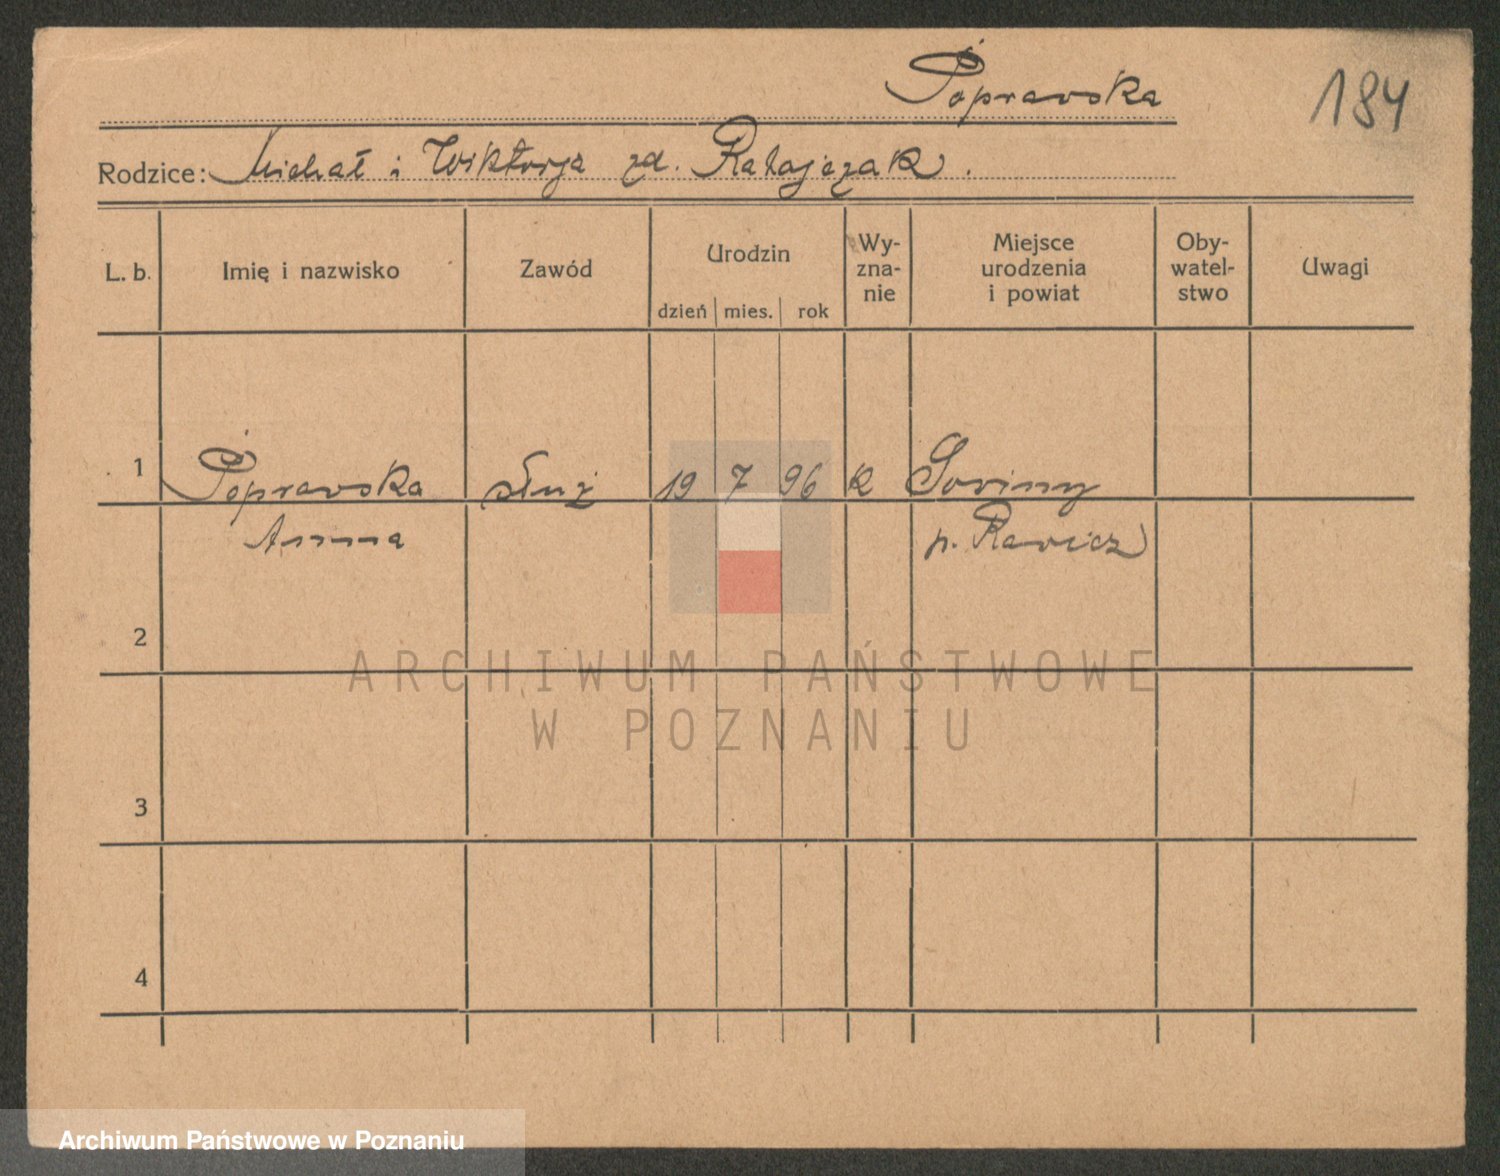 Popravska
184
Rodzice: Michał i Wiktorja zd. Ratajczak.
L. b. Imię i nazwisko Zawód Urodzin dzień mies. rok Wy-zna-nie Miejsce urodzenia i powiat Oby-watel-stwo Uwagi
1 Popravska służ 19 7 96 k Soviny
Anna p. Ravicz
2
ARCHIWUM PAŃSTWOWE
W POZNANIU
3
4
Archiwum Państwowe w Poznaniu